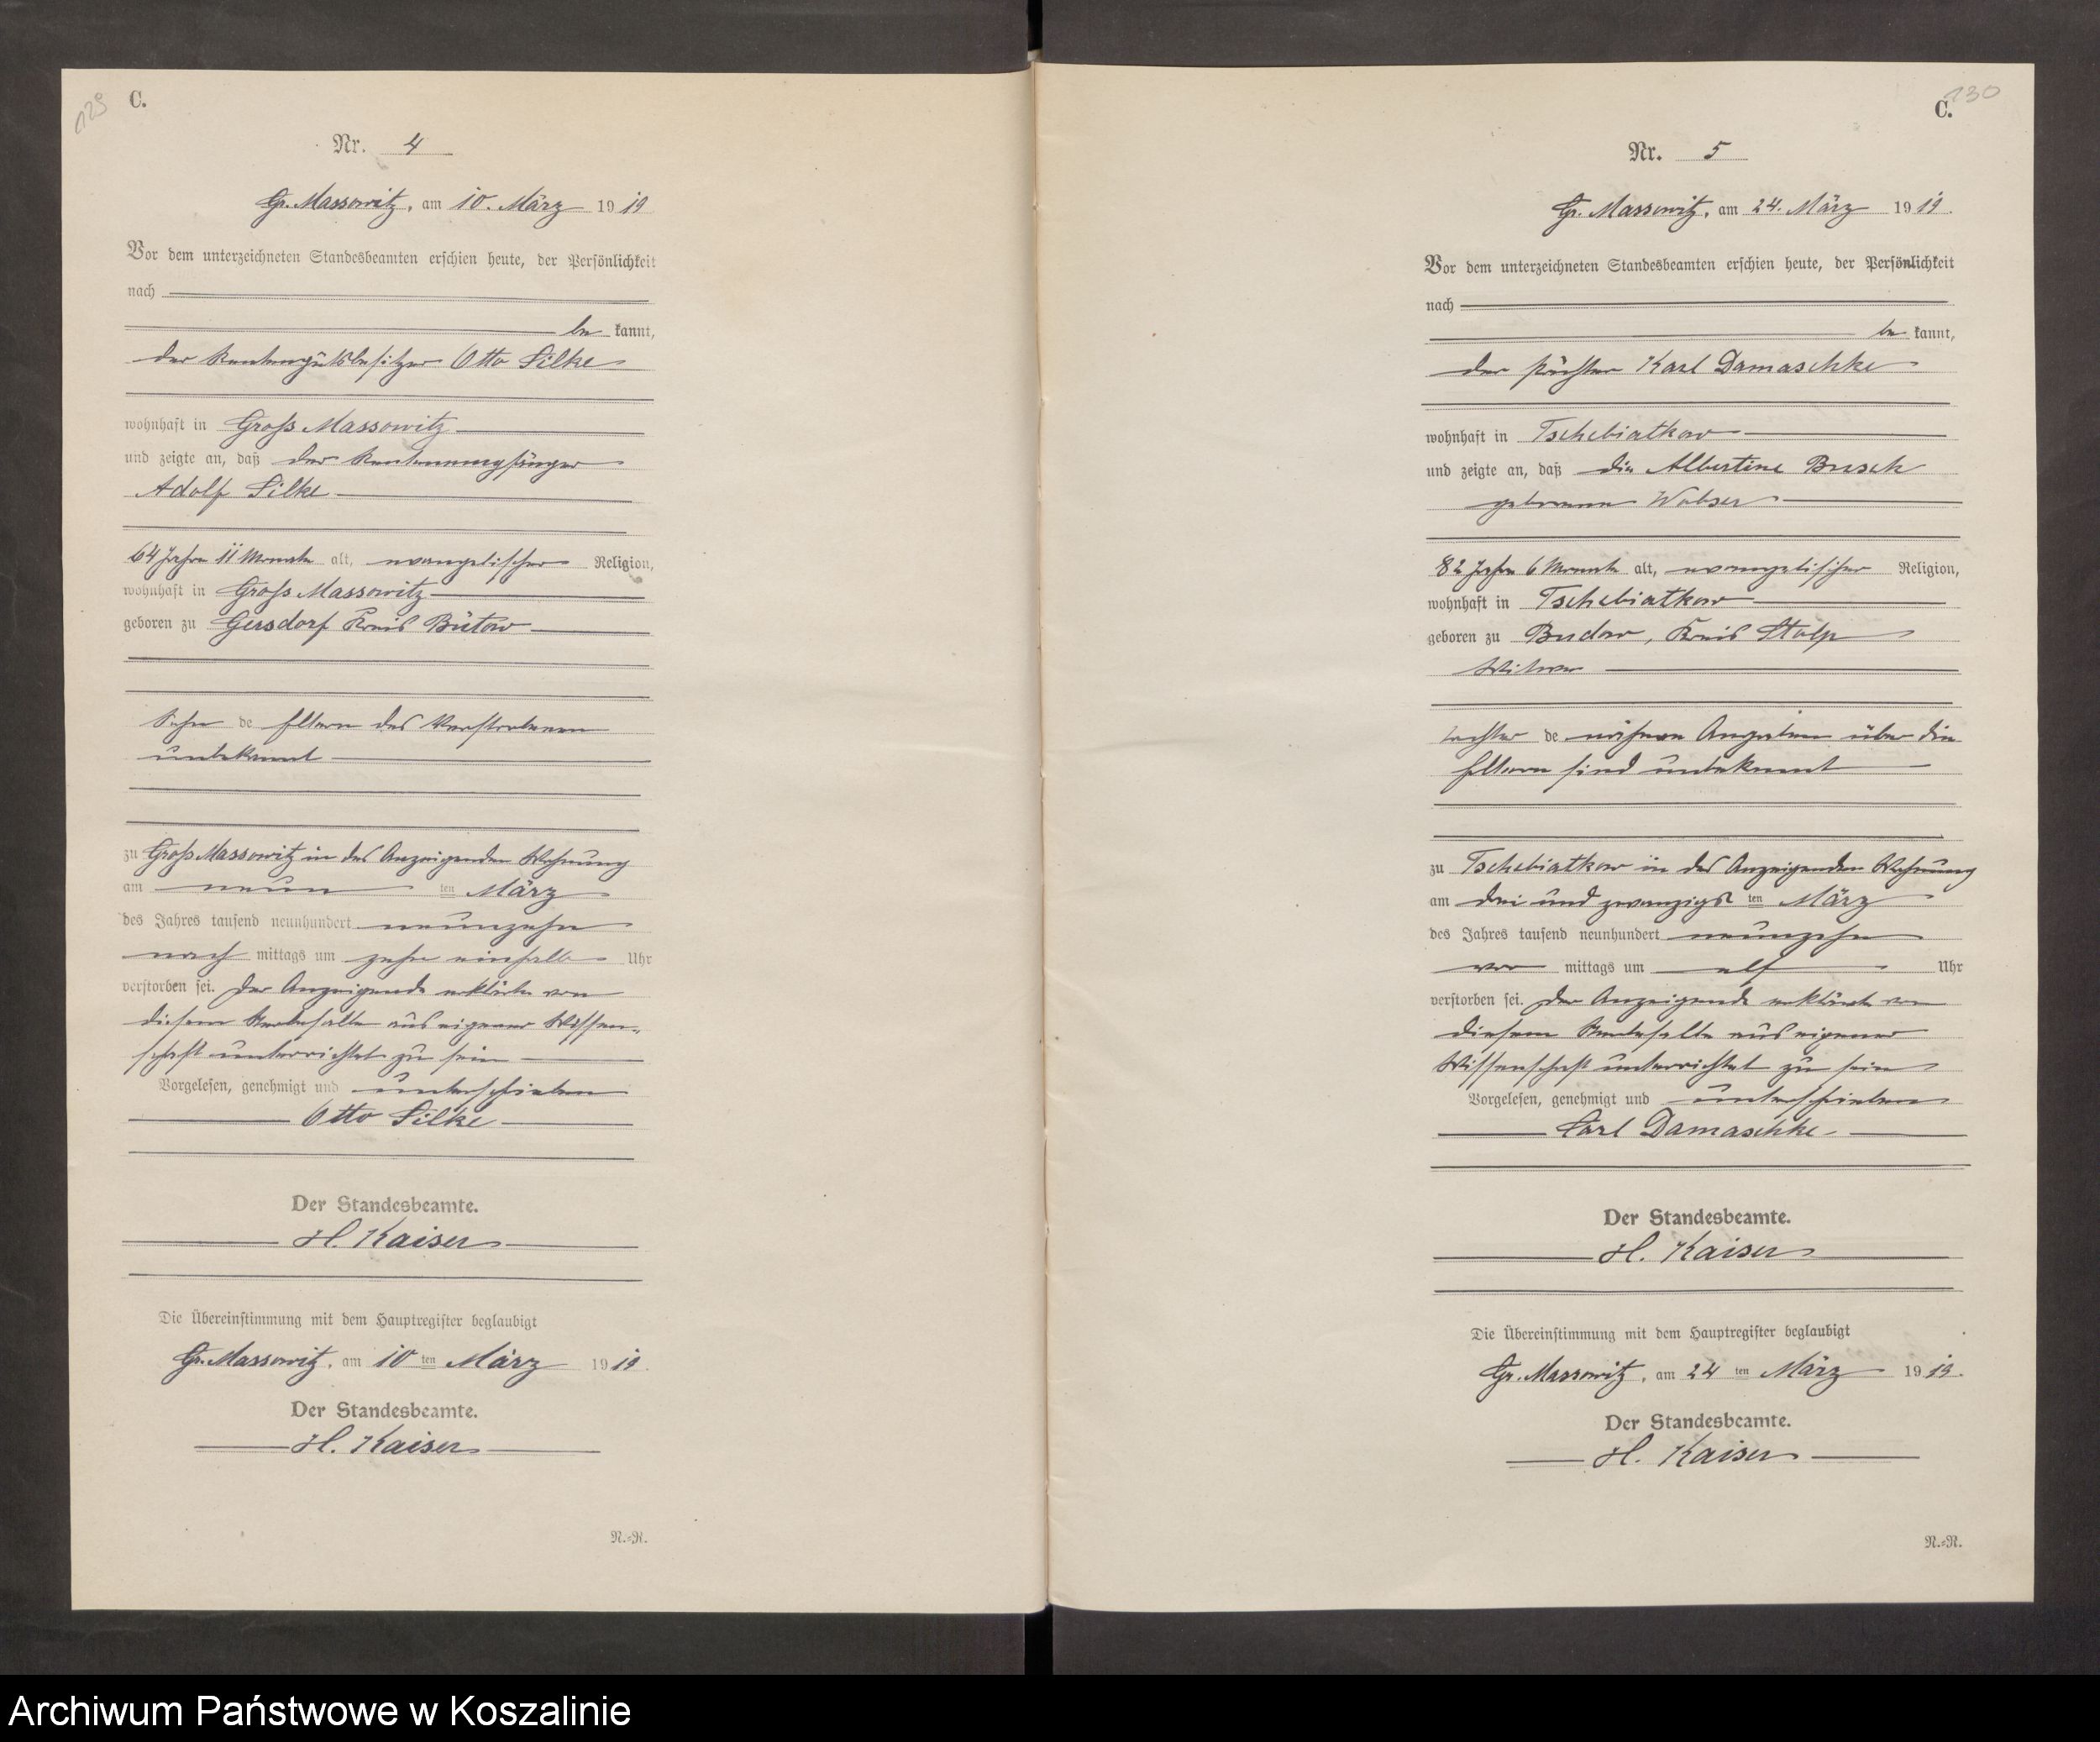 129
C.
Nr. 4
Gr. Massowitz, am 10. März 1919
Vor dem unterzeichneten Standesbeamten erschien heute, der Persönlichkeit
nach
be kannt,
der Rentengutsbesitzer Otto Silke
wohnhaft in Groß Massowitz
und zeigte an, daß der Rentenempfänger
Adolf Silke
64 Jahre 11 Monate alt, evangelischer Religion,
wohnhaft in Groß Massowitz
geboren zu Gersdorf Kreis Bütow
Sohn de Eltern des Verstorbenen
unbekannt
zu Groß Massowitz in des Anzeigenden Wohnung
am neun ten März
des Jahres tausend neunhundert neunzehn
nach mittags um zehn einhalb Uhr
verstorben sei. Der Anzeigende erklärte von
diesem Sterbefalle aus eigener Wissen-
schaft unterrichtet zu sein
Vorgelesen, genehmigt und unterschrieben
Otto Silke
Der Standesbeamte.
H. Kaiser
Die Übereinstimmung mit dem Hauptregister beglaubigt
Gr. Massowitz, am 10 ten März 1919.
Der Standesbeamte.
H. Kaiser
N.=R.
130
C.
Nr. 5
Gr. Massowitz, am 24. März 1919.
Vor dem unterzeichneten Standesbeamten erschien heute, der Persönlichkeit
nach
be kannt,
der Pächter Karl Damaschke
wohnhaft in Tschebiatkow
und zeigte an, daß die Albertine Busch
geborene Wobser
82 Jahre 6 Monate alt, evangelischer Religion,
wohnhaft in Tschebiatkow
geboren zu Budow, Kreis Stolp
Witwe
Tochter de nähere Angaben über die
Eltern sind unbekannt
zu Tschebiatkow in des Anzeigenden Wohnung
am drei und zwanzigs ten März
des Jahres tausend neunhundert neunzehn
vor mittags um elf Uhr
verstorben sei. Der Anzeigende erklärte von
diesem Sterbefalle aus eigener
Wissenschaft unterrichtet zu sein
Vorgelesen, genehmigt und unterschrieben
Carl Damaschke
Der Standesbeamte.
H. Kaiser
Die Übereinstimmung mit dem Hauptregister beglaubigt
Gr. Massowitz, am 24 ten März 1919.
Der Standesbeamte.
H. Kaiser
N.=R.
Archiwum Państwowe w Koszalinie